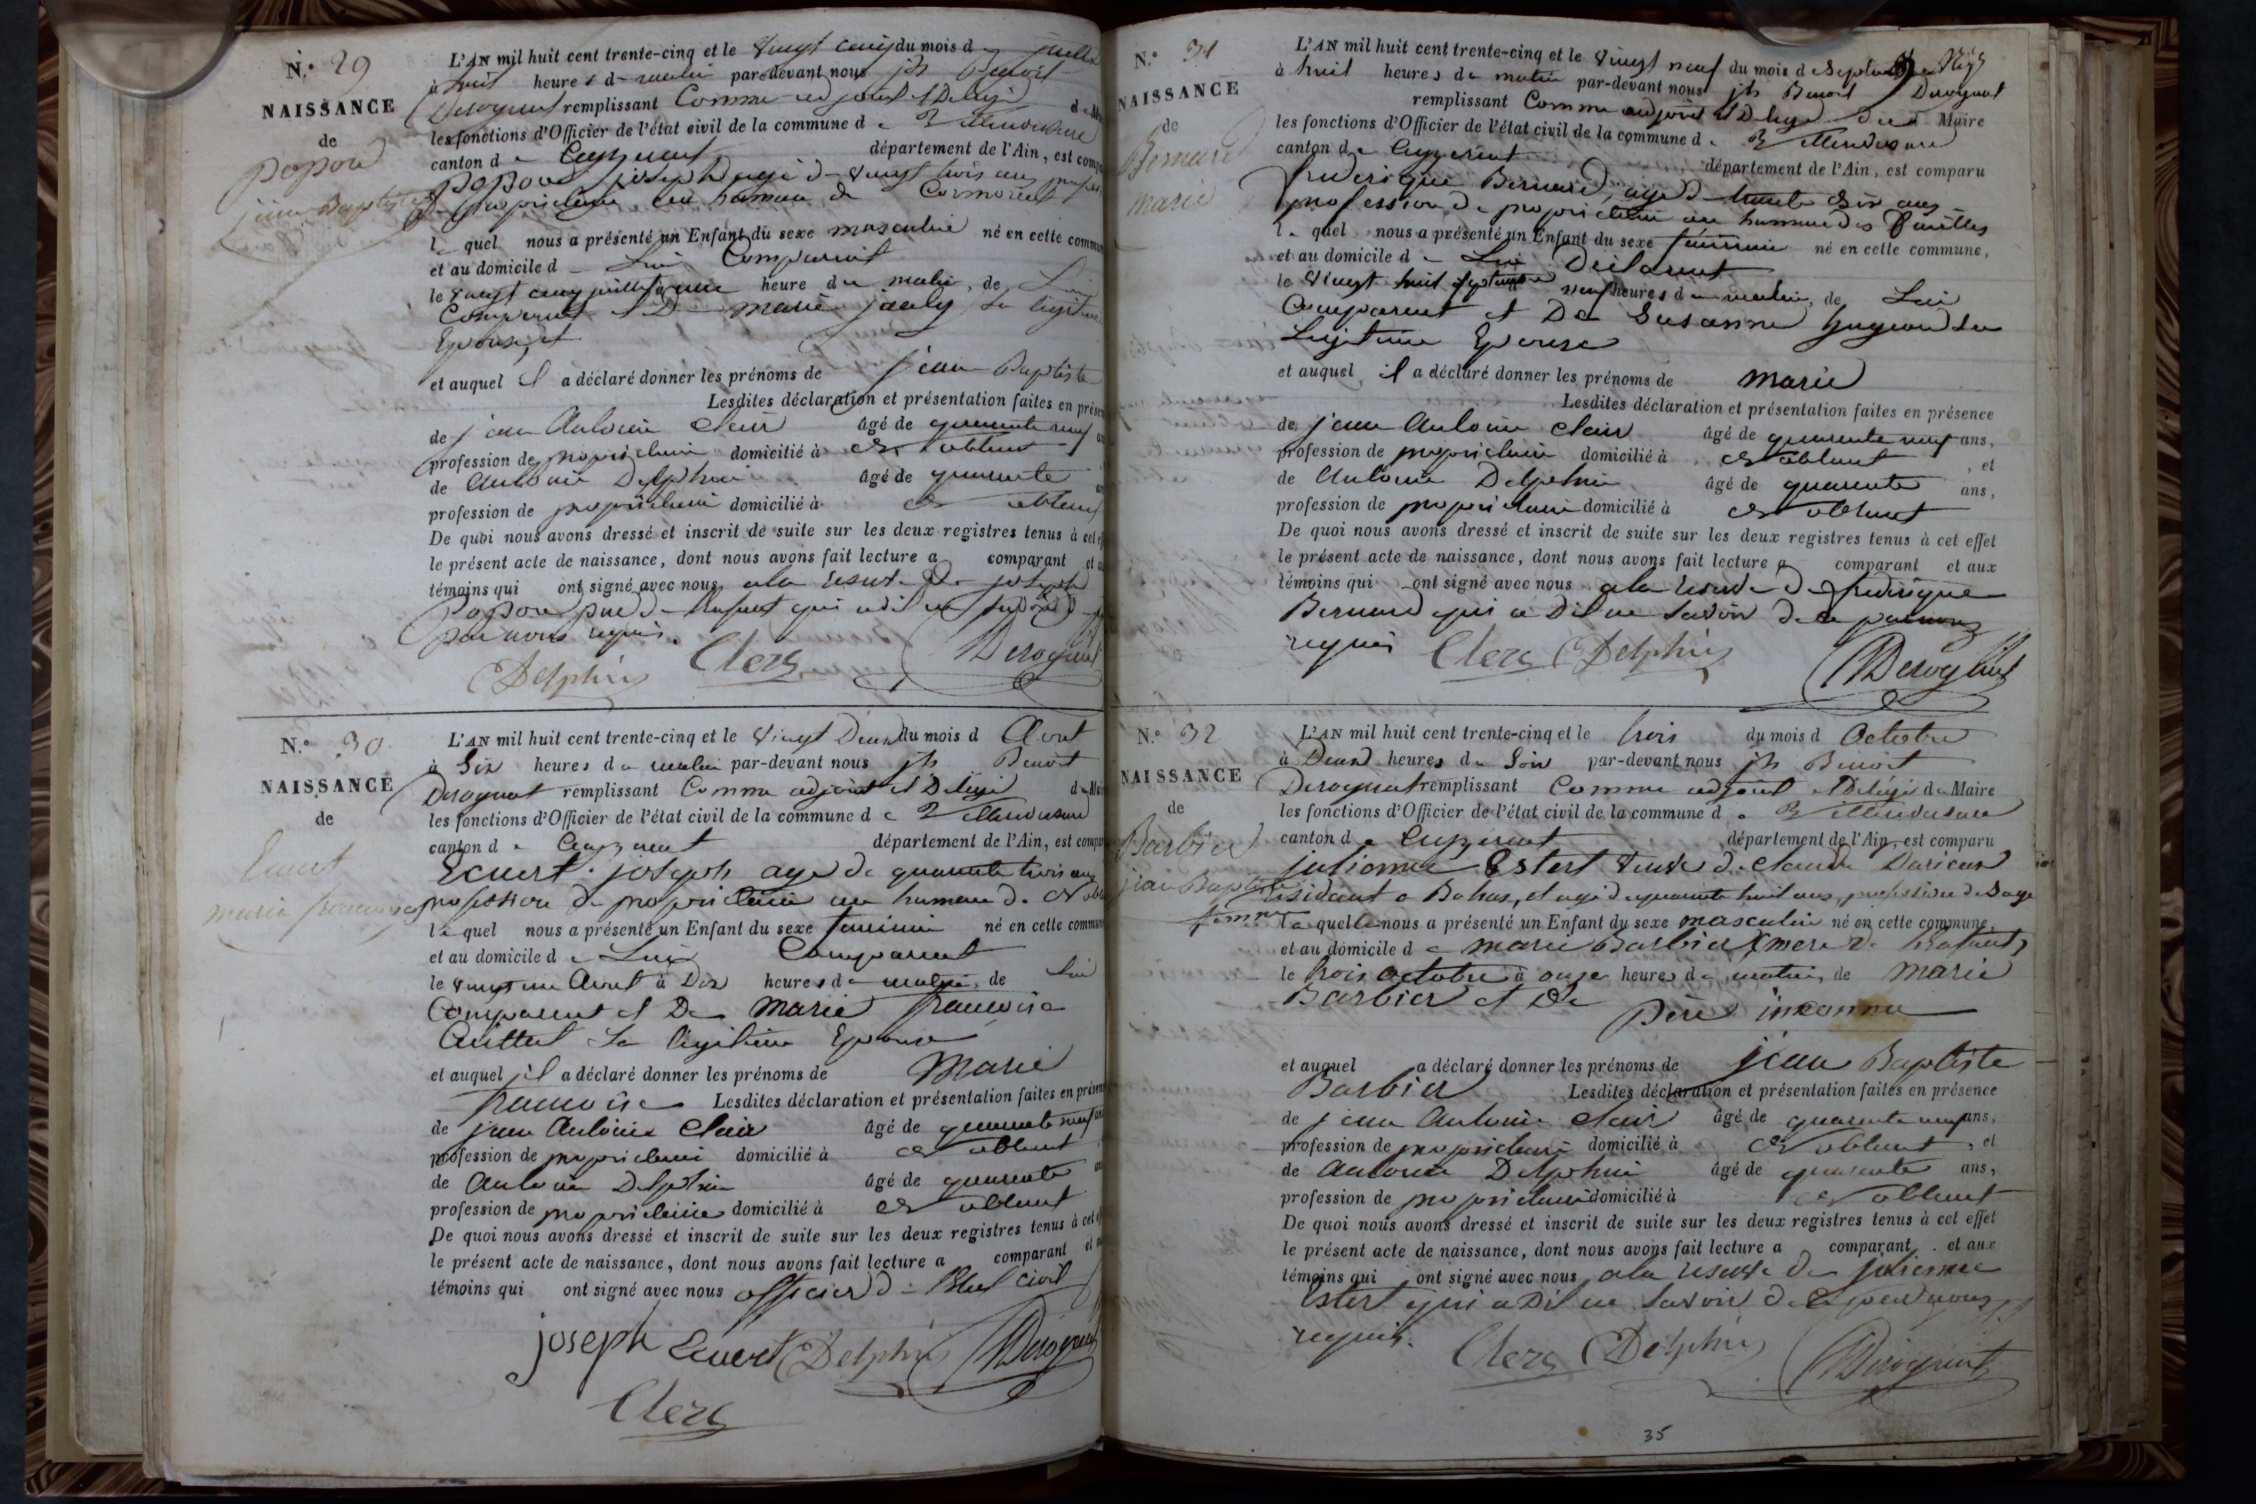 N.° 29
NAISSANCE
de
Popon
jean Baptiste
L'AN mil huit cent trente-cinq et le vingt cinq du mois d juillet
à huit heures d matin par-devant nous jh Benoit
Derognat remplissant Comme adjoint et Delegé d
les fonctions d'Officier de l'état civil de la commune d e Villereversure
canton d e Ceyzeriat département de l'Ain, est comparu
Popon joseph agé de vingt trois ans
propriétaire au hameau de Cormoreche
le quel nous a présenté un Enfant du sexe masculin né en cette commune
et au domicile d e Lui Comparant
le vingt cinq juillet à une heure du matin, de Lui
Comparant et De marie jauly sa legitime
Epouse, et
et auquel il a déclaré donner les prénoms de jean Baptiste
Lesdites déclaration et présentation faites en présence
de jean Antoine Clair âgé de quarante neuf
profession de propriétaire domicilié à
de Antoine Delphin âgé de quarante
profession de propriétaire domicilié à
De quoi nous avons dressé et inscrit de suite sur les deux registres tenus à cet
le présent acte de naissance, dont nous avons fait lecture a comparant et
témoins qui ont signé avec nous a la reserve de joseph
Popon pere de lenfant qui a dit ne savoir de
par nous requis.
Delphin Clerc Derognat
N.° 30
NAISSANCE
de
Ecuert
marie francoise
L'AN mil huit cent trente-cinq et le vingt Deux du mois d Aout
à Six heures du matin par-devant nous jh Benoit
Derognat remplissant Comme adjoint et Delegé
les fonctions d'Officier de l'état civil de la commune d e Villereversure
canton d e Ceyzeriat département de l'Ain, est comparu
Ecuert joseph agé de quarante trois ans
profession de propriétaire au hameau de
le quel nous a présenté un Enfant du sexe feminin né en cette commune
et au domicile d e Lui Comparant
le vingt un Aout à Dix heures du matin, de Lui
Comparant et De Marie francoise
sa legitime Epouse
et auquel il a déclaré donner les prénoms de Marie
francoise Lesdites déclaration et présentation faites en présence
de jean Antoine Clair âgé de quarante neuf
profession de propriétaire domicilié à
de Antoine Delphin âgé de quarante
profession de propriétaire domicilié à
De quoi nous avons dressé et inscrit de suite sur les deux registres tenus à cet
le présent acte de naissance, dont nous avons fait lecture a comparant et
témoins qui ont signé avec nous officier de l'Etat civil
joseph Ecuert Delphin Derognat
Clerc
N.° 31
NAISSANCE
de
Bernard
marie
L'AN mil huit cent trente-cinq et le vingt neuf du mois d e Septembre
à huit heures du matin par-devant nous jh Benoit Derognat
remplissant Comme adjoint et Delegé du Maire
les fonctions d'Officier de l'état civil de la commune d e Villereversure
canton d e Ceyzeriat département de l'Ain, est comparu
frederique Bernard, agé de trente Six ans
profession de propriétaire au hameau des
le quel nous a présenté un Enfant du sexe féminin né en cette commune,
et au domicile d e Lui Déclarant
le vingt huit septembre neuf heures du matin, de Lui
Comparant et De Susanne Guyon sa
Legitime Epouse
et auquel il a déclaré donner les prénoms de marie
Lesdites déclaration et présentation faites en présence
de jean Antoine Clair âgé de quarante neuf ans,
profession de propriétaire domicilié à , et
de Antoine Delphin âgé de quarante ans,
profession de propriétaire domicilié à
De quoi nous avons dressé et inscrit de suite sur les deux registres tenus à cet effet
le présent acte de naissance, dont nous avons fait lecture a comparant et aux
témoins qui ont signé avec nous a la reserve de frederique
Bernard qui a Dit ne savoir de ce par nous
requis Clerc Delphin
Derognat
N.° 32
NAISSANCE
de
Barbier
jean Baptiste
L'AN mil huit cent trente-cinq et le trois du mois d Octobre
à Deux heures du Soir par-devant nous jh Benoit
Derognat remplissant Comme adjoint et Délégué du Maire
les fonctions d'Officier de l'état civil de la commune d e Villereversure
canton d e Ceyzeriat département de l'Ain, est comparu
julienne Estert veuve de Claude
résidant a Bohas, et agé de quarante huit ans, profession de Sage
femme La quelle nous a présenté un Enfant du sexe masculin né en cette commune,
et au domicile d e marie Barbier (mere de l'enfant)
le trois octobre à onze heures du matin, de marie
Barbier et De Père inconnu
et auquel a déclaré donner les prénoms de jean Baptiste
Barbier Lesdites déclaration et présentation faites en présence
de jean Antoine Clair âgé de quarante neuf ans,
profession de propriétaire domicilié à , et
de Antoine Delphin âgé de quarante ans,
profession de propriétaire domicilié à
De quoi nous avons dressé et inscrit de suite sur les deux registres tenus à cet effet
le présent acte de naissance, dont nous avons fait lecture a comparant et aux
témoins qui ont signé avec nous a la reserve de julienne
Estert qui a Dit ne savoir de ce par nous
requis. Clerc Delphin Derognat
35